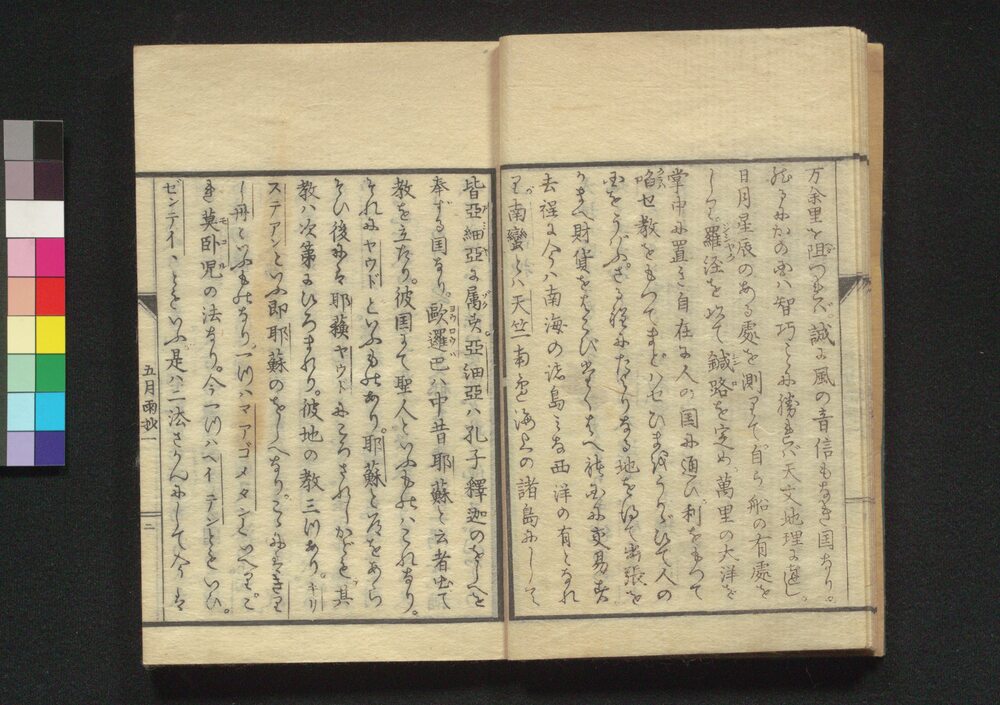 万余里を阻つれバ誠に風の音信もなき国なり。
然るにかの国ハ智巧ことに勝れバ天文地理に達し。
日月星辰のある處を測りて自ら船の有處を
しり。羅経を以て鍼路を定め、萬里の大洋を
掌中に置き自在に人の国に通ひ利をもつて
啗せ教をもつてまどハせひまをうかゞひて人の
国をうばふ。さる程にたよりなる地を得て出張を
かまへ財貨をはこび
去程に今ハ南海の諸島みな西洋の有となれ
り南蠻とハ天竺南邊海上の諸島にして
皆亞細亞に属す。亞細亞ハ孔子釋迦のをしへを
奉ずる国なり。歐邏巴ハ中昔耶蘓と云者出て
教を立たり。彼国にて聖人といふものハこれなり。
それにヤウドといふものあり。耶蘓と法をあら
そひ後にハ耶蘓ヤウドにころされしかども其
教ハ次第にひろまれり。彼地の教三ツあり。キリ
ステアンといふ即耶蘓のをしへなり。こゝにいふきり
し丹といふものなり。一ツハマアゴメタンといへり。こ
れ莫卧児の法なり。今一ツハヘイデンともいひ。
ゼンテイヽともいふ是ハ二法さかんにして今ハ
五月雨抄一
二